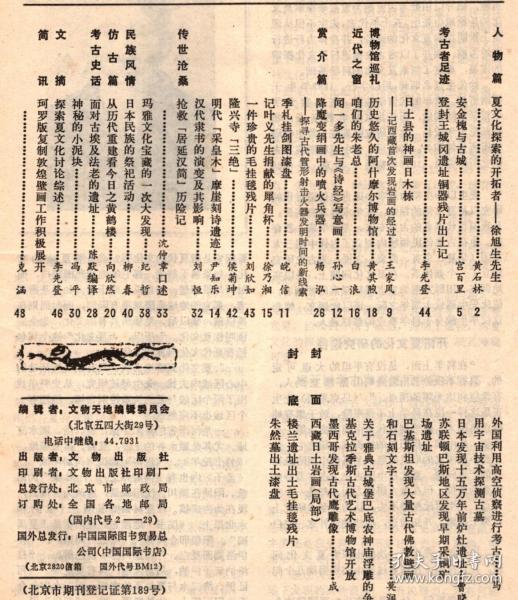 人物篇
夏文化探索的开拓者——徐旭生先生……黄石林 2
安金槐与古城……宫百里 5
考古者足迹
登封王城冈遗址铜器残片出土记……李先登 44
日土县的神画日木栋
——记西藏首次发现岩画的经过……王家凤 9
博物馆巡礼
历史悠久的阿什摩尔博物馆……黄其煦 18
近代之窗
咱们的朱老总……白浪 16
闻一多先生与《诗经》写意画……孙心一 12
赏介篇
降魔变绢画中的喷火兵器……杨泓 26
——探寻古代管形射击火器发明时间的新线索
季札挂剑图漆盘……蜕信 11
记叶义先生捐献的犀角杯……徐乃湘 15
一件珍贵的毛挂毯残片……刘欣如 43
隆兴寺“三绝”……侯菊坤 42
明代「采皇木」摩崖刻诗遗迹……尹知乐 14
汉代隶书的演变及其影响……刘恒 32
传世沧桑
抢救「居延汉简」历险记
……沈仲章口述 33
玛雅文化宝藏的一次大发现……纪哲 38
民族风情
日本民族的祭祀活动……柳春 40
仿古篇
从历代重建看今日之黄鹤楼……向欣然 20
考古史话
面对古埃及法老的遗址……陈默编译 28
神秘的小泥块……冯平 30
文摘
探索夏文化讨论综述……李先登 46
简讯
珂罗版复制敦煌壁画工作积极展开
……克涵 48
外国利用高空侦察进行考古……
用宇宙技术探测古墓
日本发现十五万年前炉灶遗址……
苏联顿巴斯地区发现早期采铜矿
场遗址
巴基斯坦发现大量古代佛教壁画
和石刻文字……
关于雅典古城堡巴底农神庙浮雕的争
基克拉季斯古代艺术博物馆开放
墨西哥发现古代鹰雕像……成
封面
西藏日土岩画(局部)
封底
楼兰遗址出土毛挂毯残片
朱然墓出土漆盘
编辑者：文物天地编辑委员会
（北京五四大街29号）
电话中继线：44.7931
出版者：文物出版社
印刷者：文物出版社印刷厂
总发行处：北京市邮政局
订购处：全国各地邮局
（国内代号2——29）
国外总发行：中国国际图书贸易总
公司(中国国际书店)
(北京2820信箱 国外代号BM12)
（北京市期刊登记证第189号）
孔夫子旧书网
kongfz.com